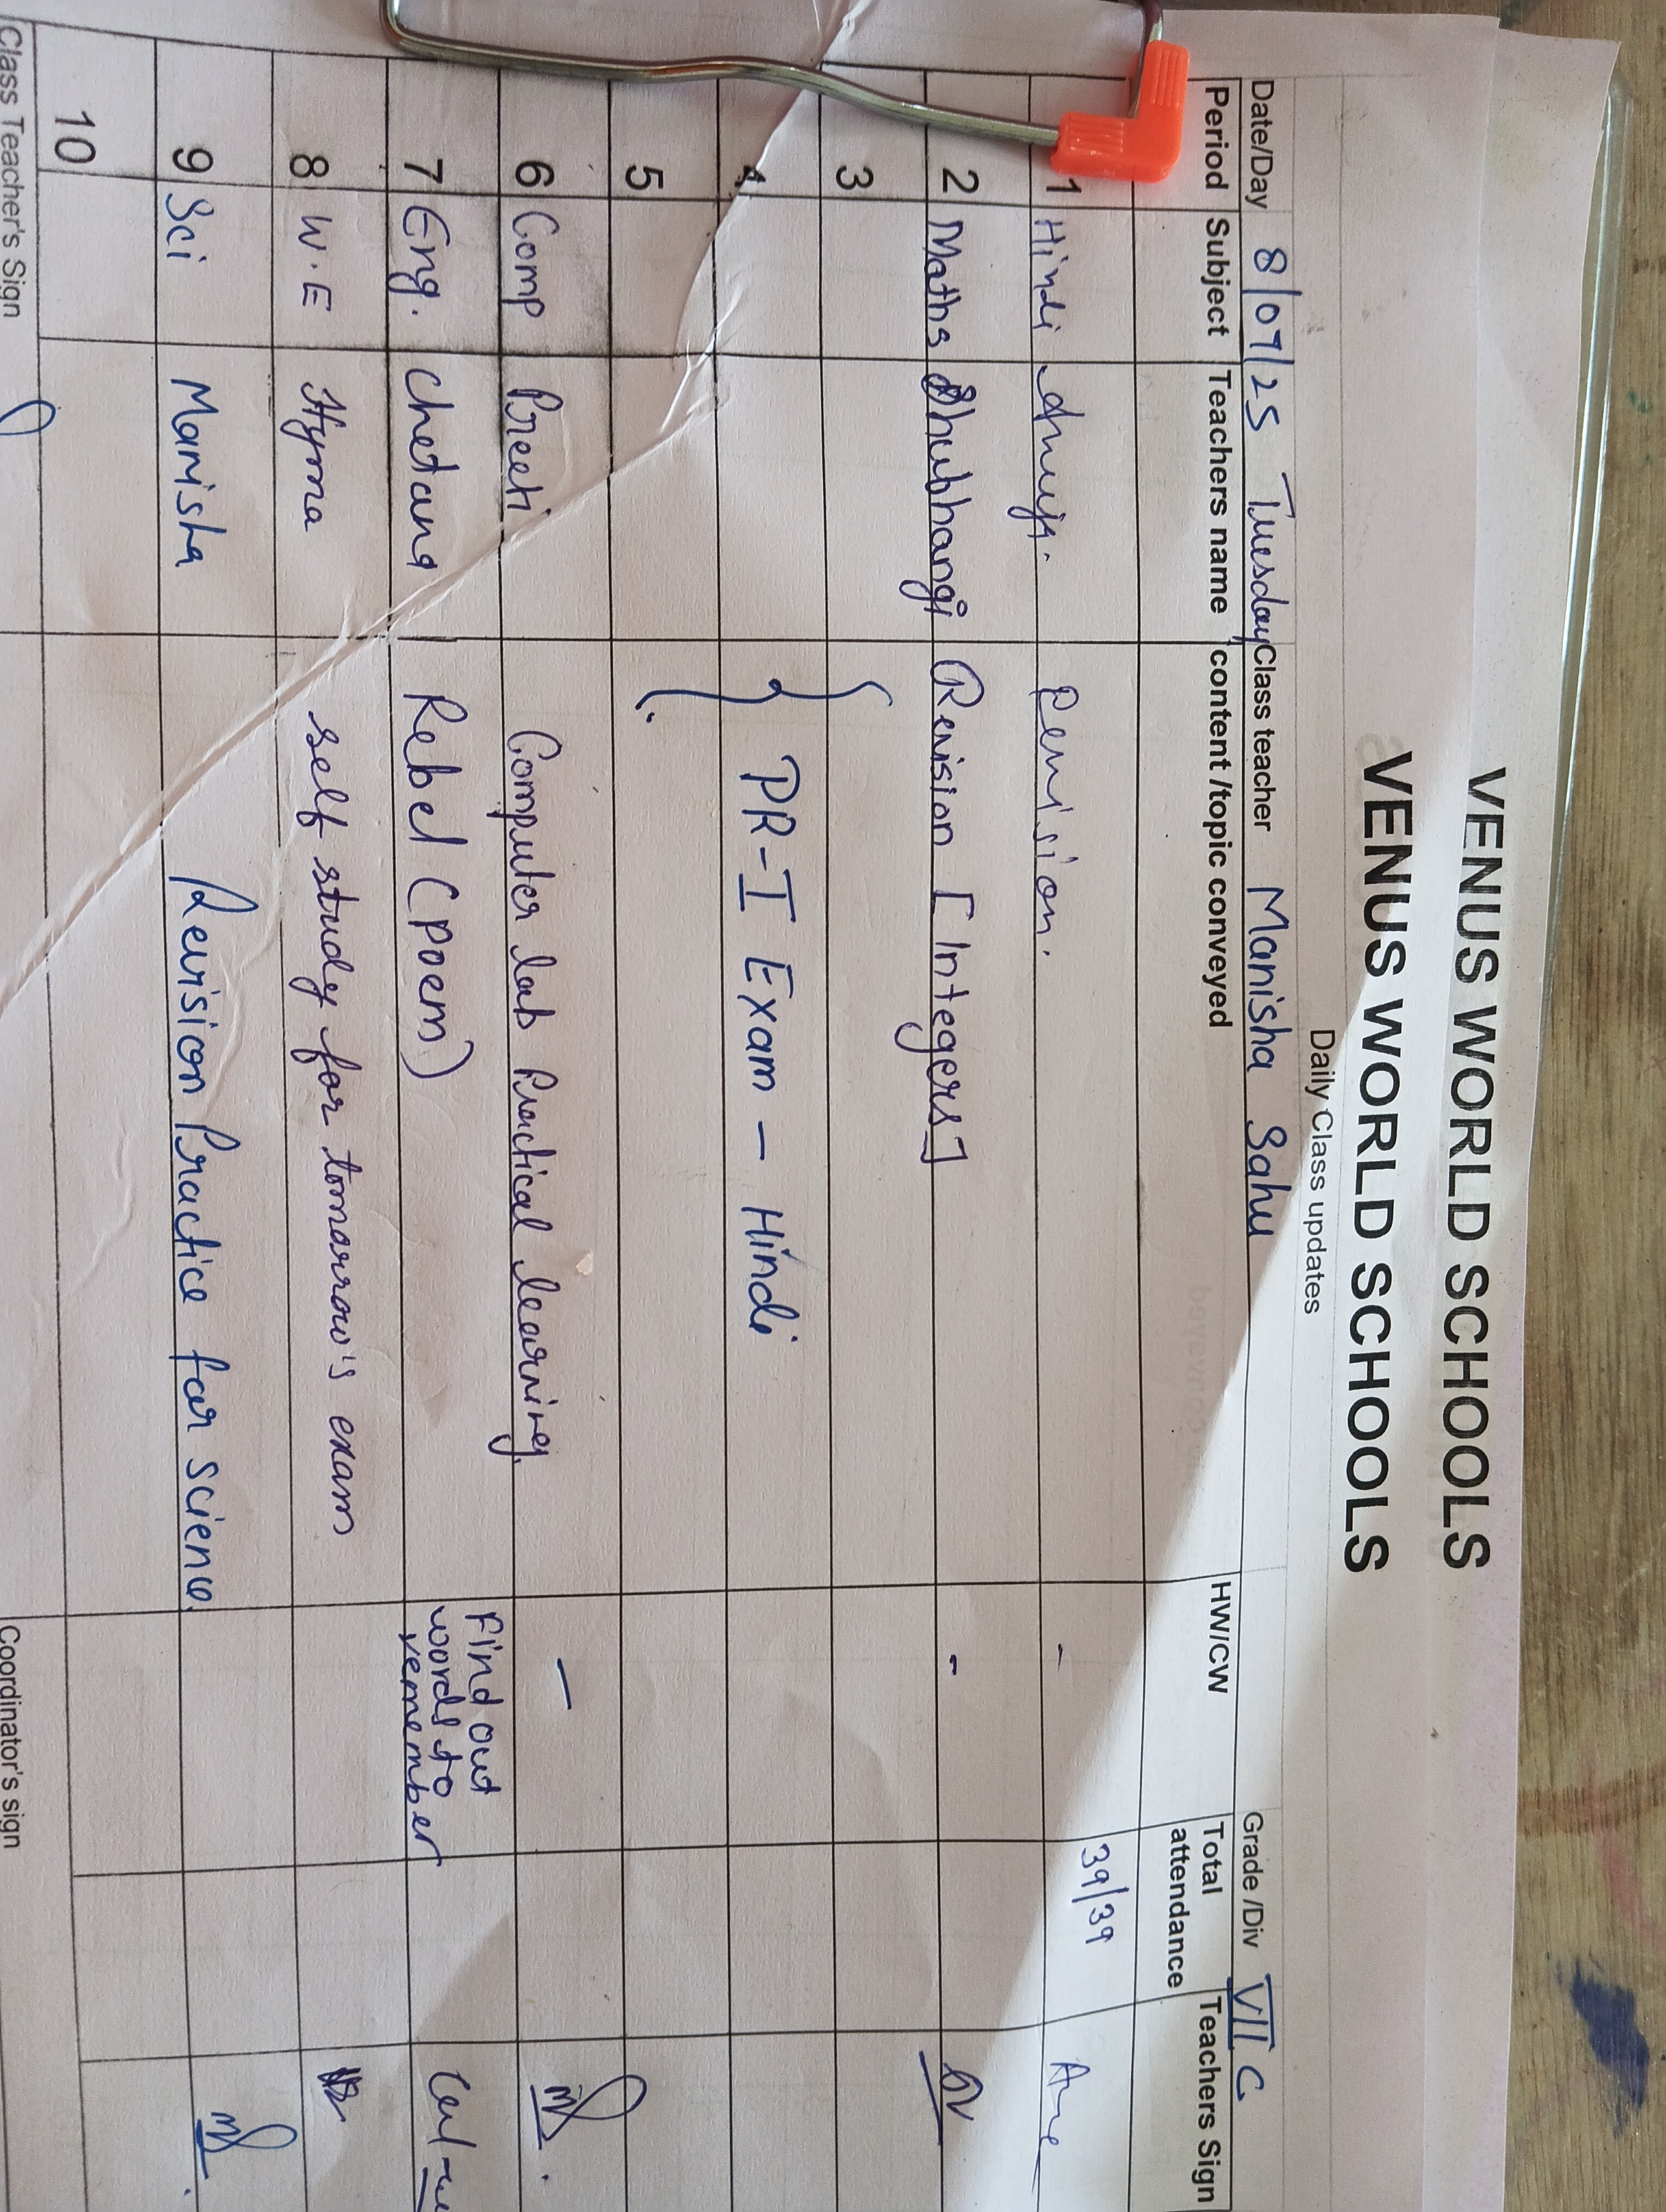 VENUS WORLD SCHOOLS
VENUS WORLD SCHOOLS
Daily Class updates
Date/Day 8/07/25 Tuesday Class teacher Manisha Sahu Grade /Div VII C
Period Subject Teachers name content /topic conveyed HW/CW Total attendance Teachers Sign
1 Hindi Anuja. Revision. - 39/39
2 Maths Shubhangi Revision [Integers] -
3
4 PR-I Exam - Hindi
5
6 Comp Preeti Computer lab Practical learning. -
7 Eng. Chetana Rebel (poem) Find out words to remember
8 W.E Hyma self study for tomorrow's exam
9 Sci Manisha Revision Practice for science.
10
Class Teacher's Sign Coordinator's sign